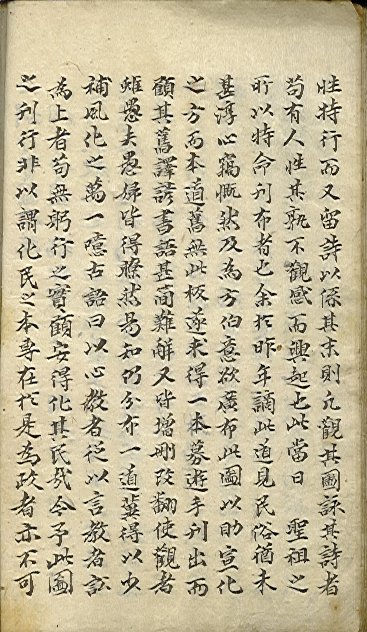 性特行而又留詩以係其末則凡觀其圖詠其詩者
苟有人性其孰不觀感而興起也此當日 聖祖之
所以特命刊布者也余於昨年謫此道見民俗猶未
甚淳心竊慨然及為方伯意欲廣布此圖以助宣化
之方而本道舊無此板遂求得一本募遊手刊出而
顧其舊譯諺書語甚簡難解又皆增刪改翻使觀者
雖愚夫愚婦皆得瞭然易知仍分布一道冀得以少
補風化之萬一噫古語曰以心教者從以言教者訟
為上者苟無躬行之實顧安得化其民哉今予此圖
之刊行非以謂化民之本專在於是為政者亦不可